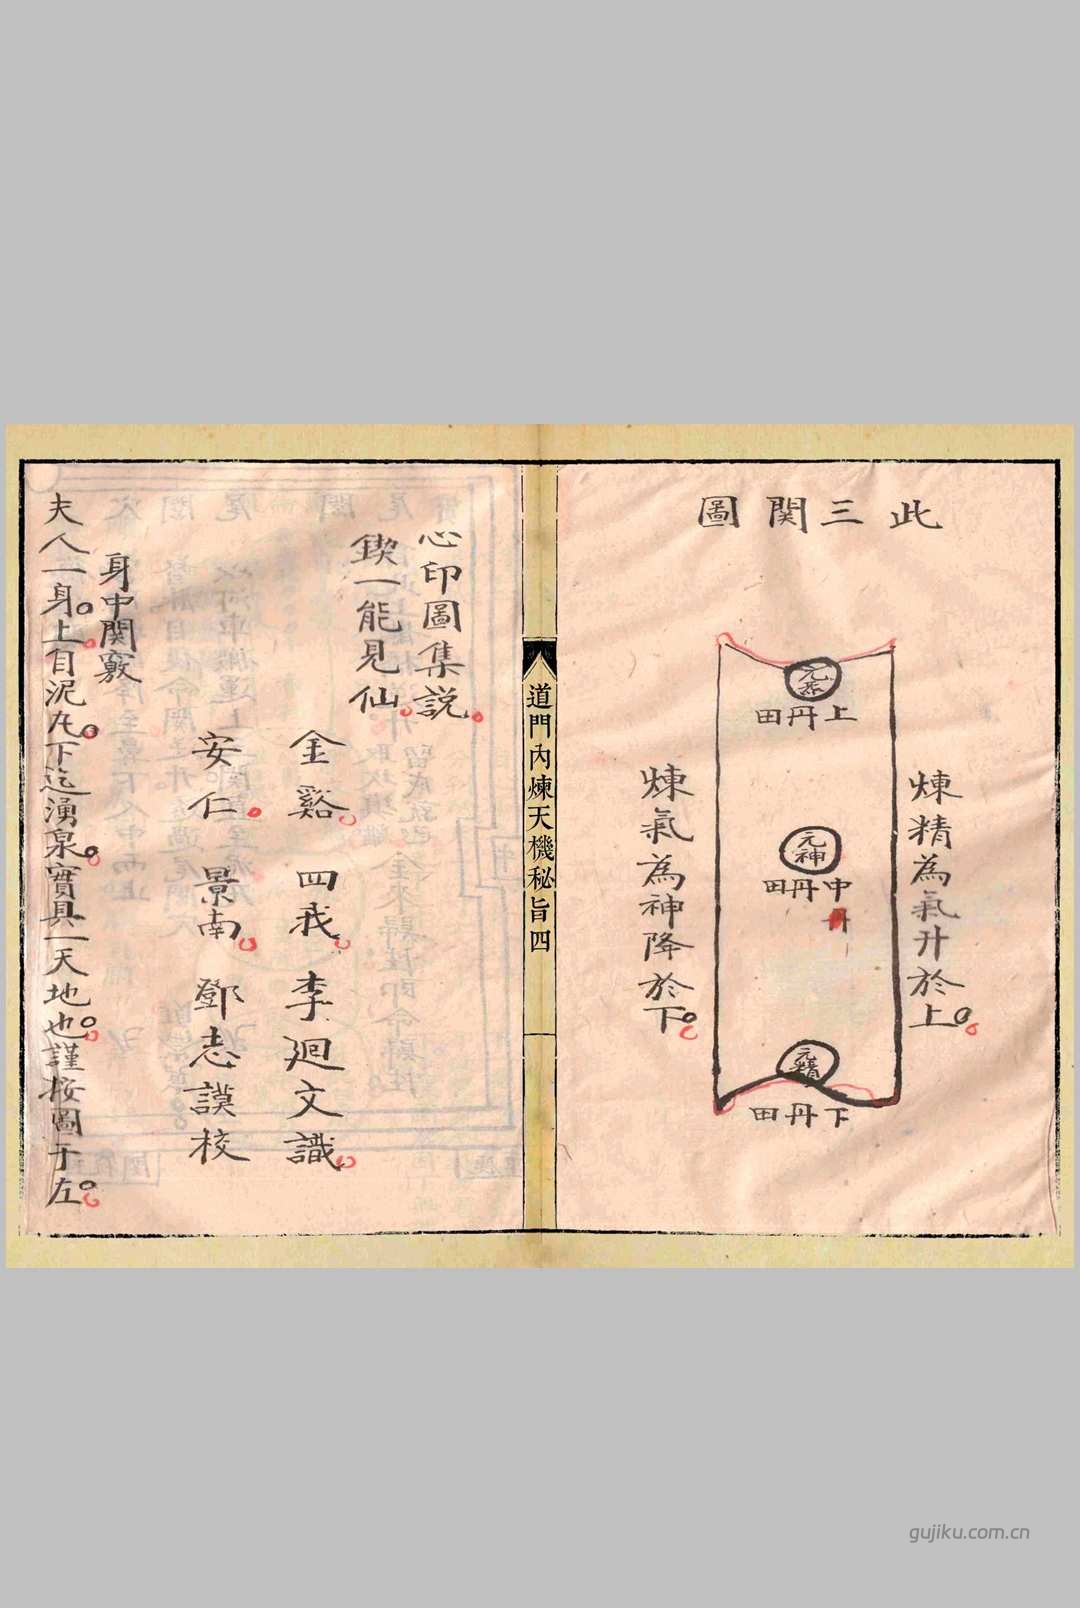 此三関圖
煉精為氣升於上
元炁
上丹田
元神
中丹田
丹
元精
下丹田
煉氣為神降於下
道門內煉天機秘旨四
心印圖集説
鍥一能見仙
金谿 四我 李廻文識
安仁 景南 鄧志謨校
身中関竅
夫人一身上自泥丸下迄湧泉實具一天地也謹按圖于左
gujiku.com.cn